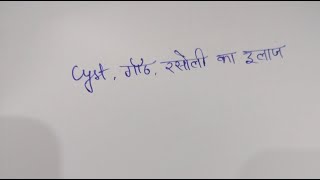 Cyst, गाँठ, रसोली का इलाज